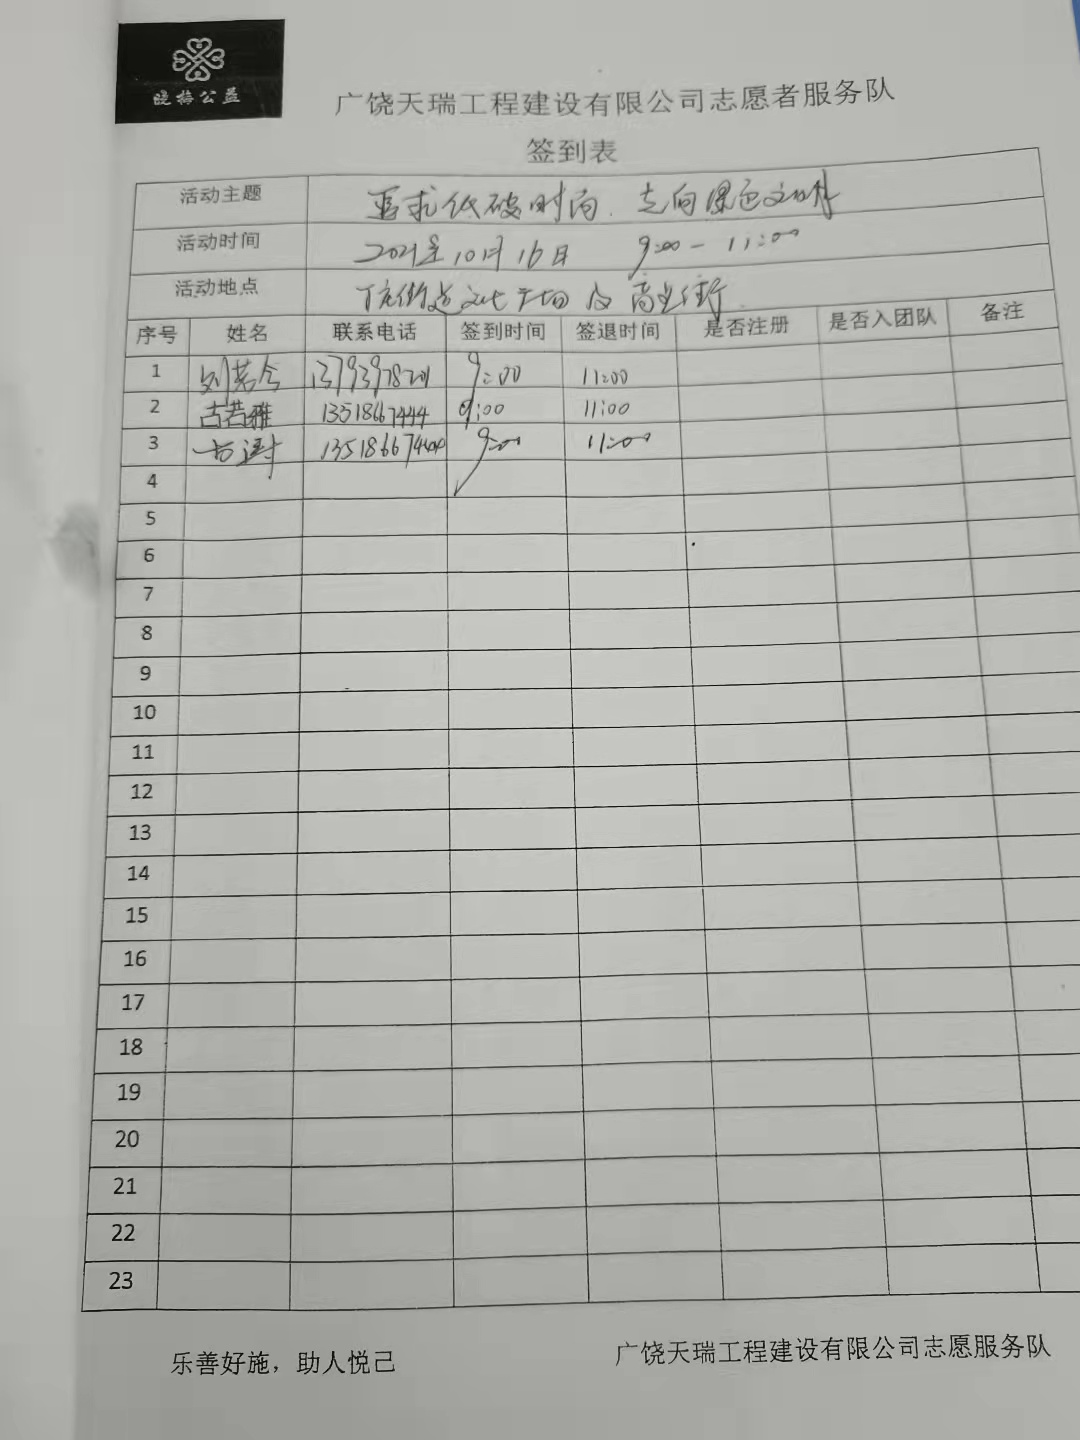 晓梅公益
广饶天瑞工程建设有限公司志愿者服务队
签到表
活动主题 追求低碳时尚、走向绿色文明
活动时间 2021年10月16日 9:00-11:00
活动地点 丁庄街道文化广场及商业街
序号 姓名 联系电话 签到时间 签退时间 是否注册 是否入团队 备注
1 刘若含 9:00 11:00
2 古若雅 13518667444 9:00 11:00
3 古 13518667444 9:00 11:00
4
5
6
7
8
9
10
11
12
13
14
15
16
17
18
19
20
21
22
23
乐善好施，助人悦己 广饶天瑞工程建设有限公司志愿服务队